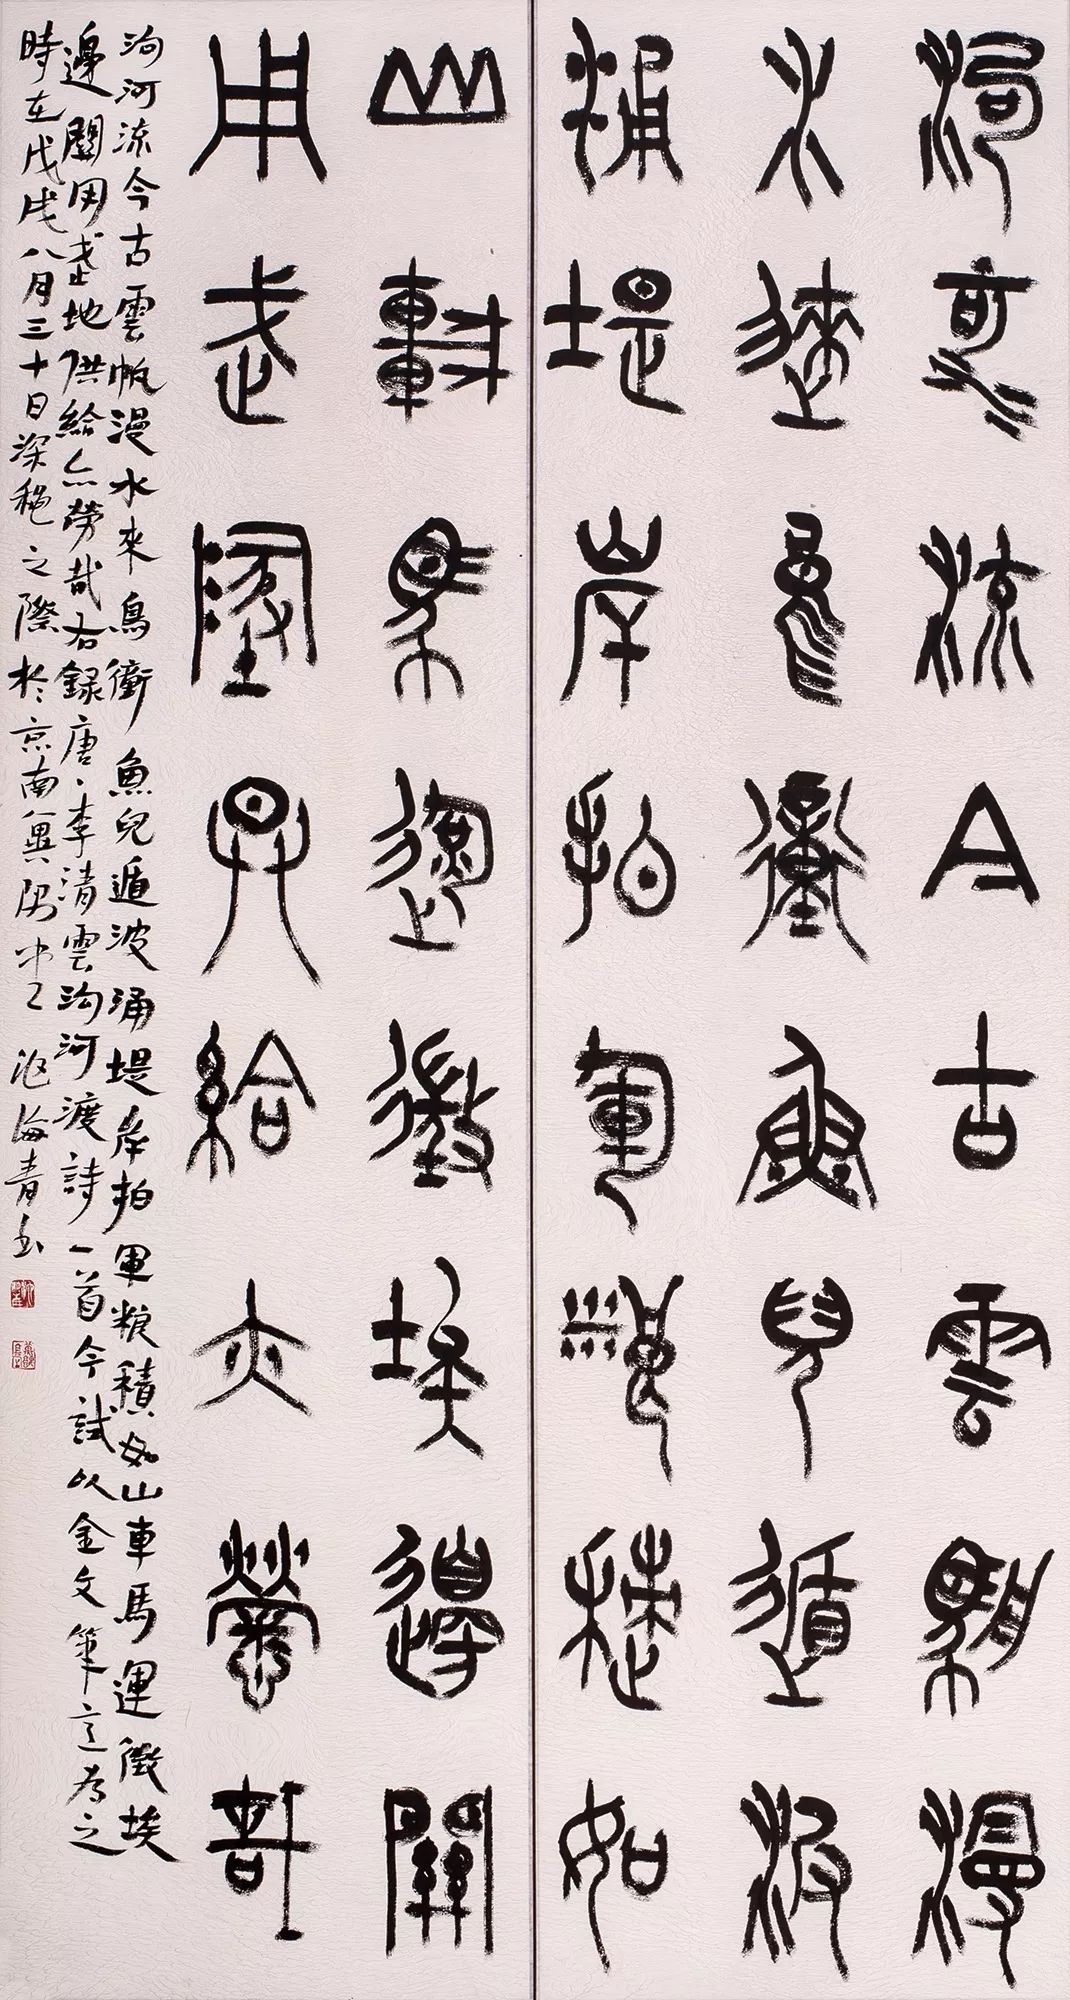 泃河流今古雲帆漫
水來鳥衝魚兒遁波
涌堤岸拍軍粮積如
山車馬運徵埃邊關
用武地供給亦勞哉
泃河流今古雲帆漫水來鳥衝魚兒遁波涌堤岸拍軍粮積如山車馬運徵埃
邊關用武地供給亦勞哉右録唐、李清雲泃河渡詩一首今試以金文筆意为之
時在戊戌八月三十日深穐之際於京南 沈海青書